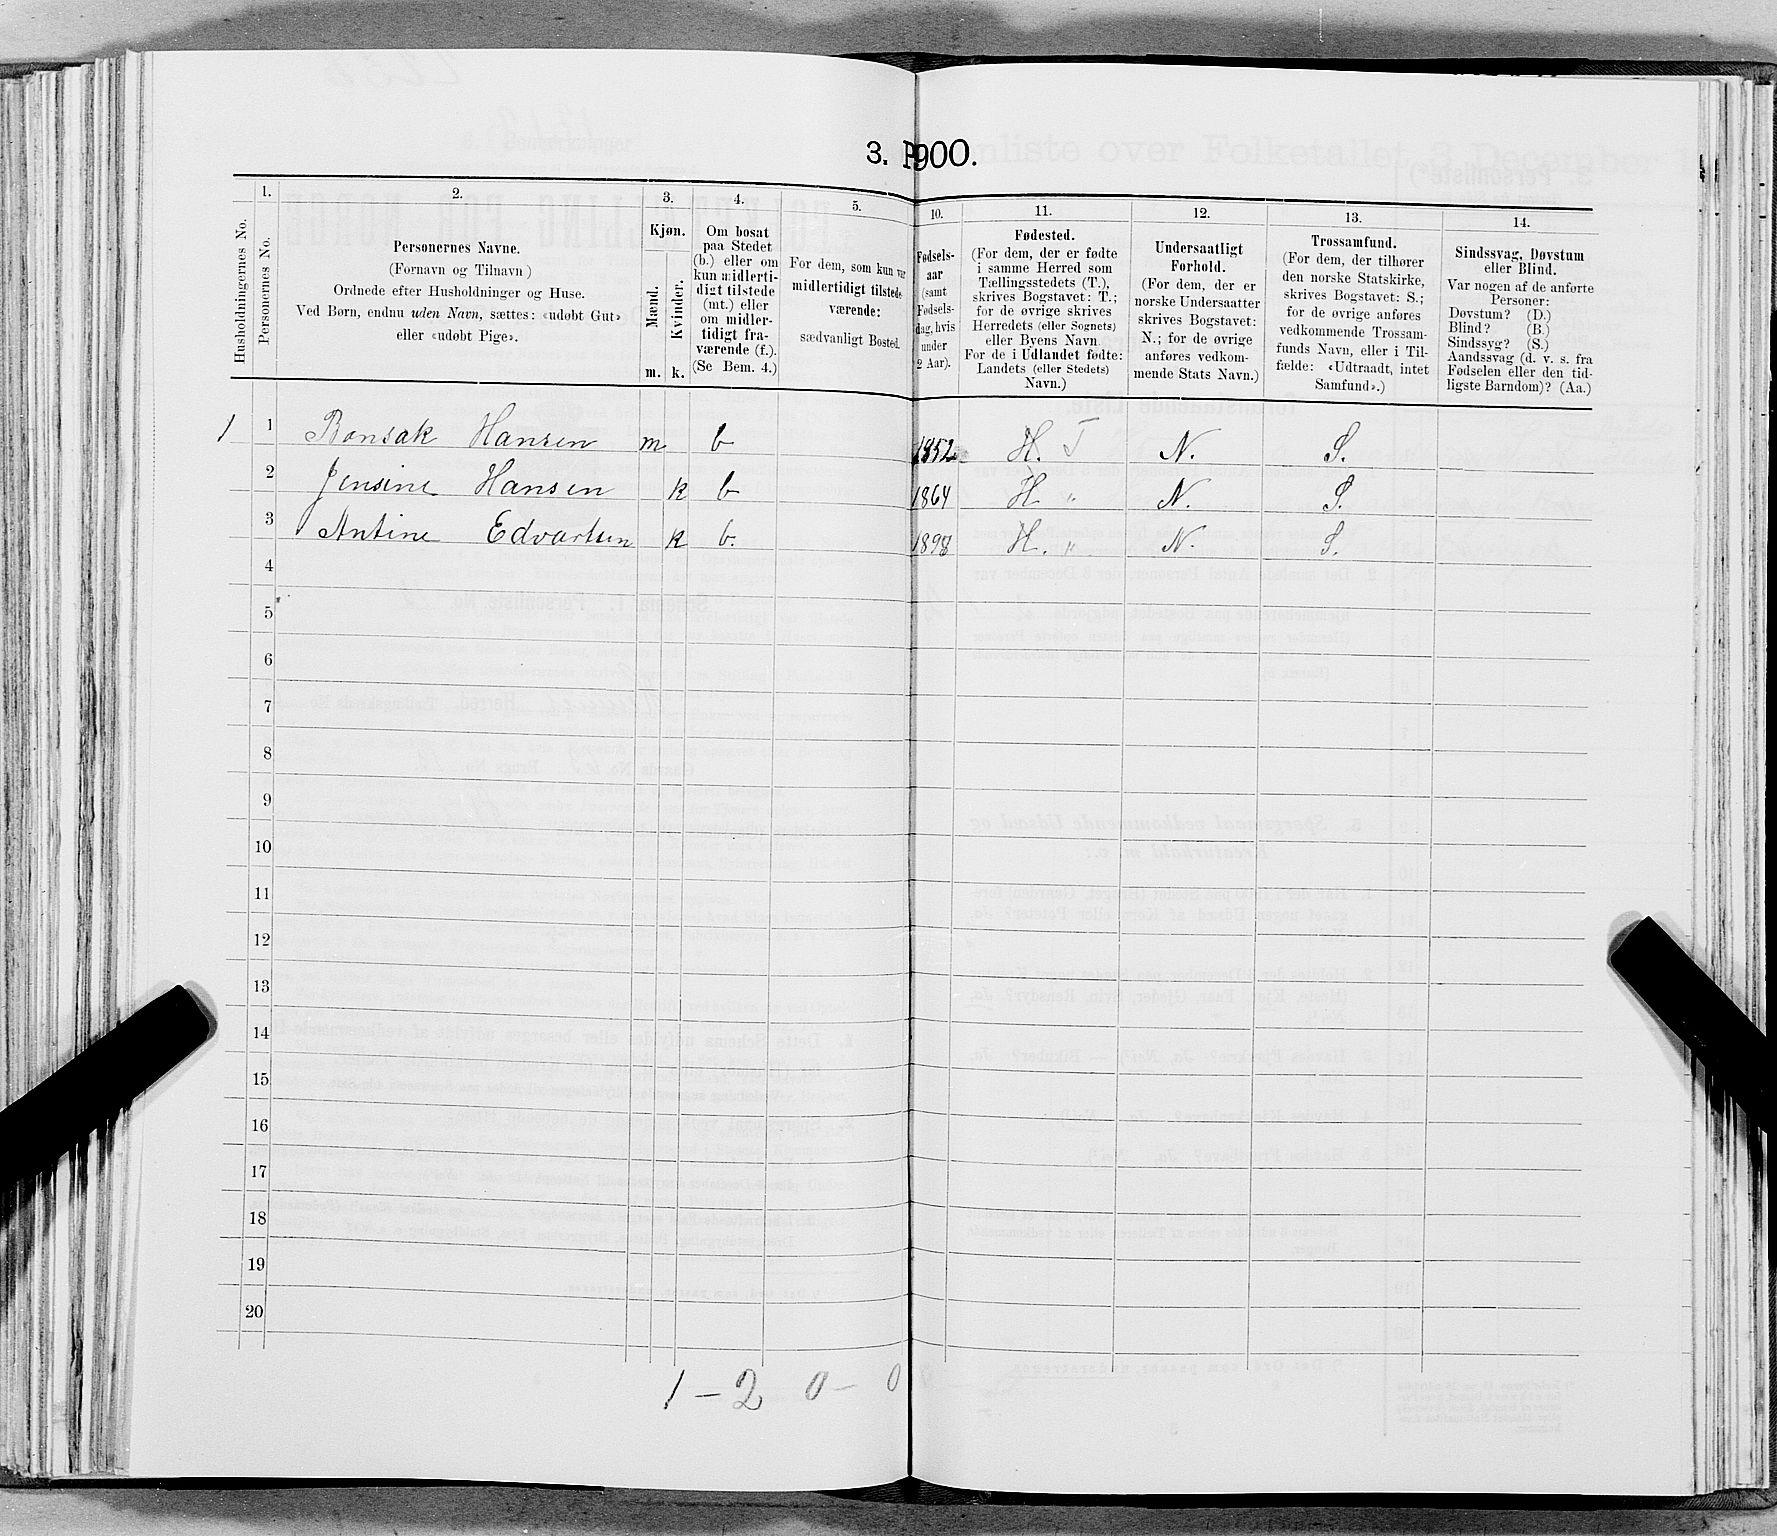 3. P900.
1. 2. 3. 4. 5. 10. 11. 12. 13. 14.
Husholdningernes No.
Personernes No.
Personernes Navne.
(Fornavn og Tilnavn)
Ordnede efter Husholdninger og Huse.
Ved Børn, endnu uden Navn, sættes: «udøbt Gut»
eller «udøbt Pige».
Kjøn.
Mænd.
Kvinder.
m. k.
Om bosat
paa Stedet
(b.) eller om
kun midlerti-
digt tilstede
(mt.) eller
om midler-
tidigt fra-
værende (f.).
(Se Bem. 4.)
For dem, som kun var
midlertidigt tilstede-
værende:
sædvanligt Bosted.
Fødsels-
aar
(samt
Fødsels-
dag, hvis
under
2 Aar).
Fødested.
(For dem, der er fødte
i samme Herred som
Tællingsstedets (T.),
skrives Bogstavet: T.;
for de øvrige skrives
Herredets (eller Sognets)
eller Byens Navn.
For de i Udlandet fødte:
Landets (eller Stedets)
Navn.)
Undersaatligt
Forhold.
(For dem, der er
norske Undersaatter
skrives Bogstavet:
N.; for de øvrige
anføres vedkom-
mende Stats Navn.)
Trossamfund.
(For dem, der tilhører
den norske Statskirke,
skrives Bogstavet: S.;
for de øvrige anføres
vedkommende Trossam-
funds Navn, eller i Til-
fælde: «Udtraadt, intet
Samfund».)
Sindssvag, Døvstum
eller Blind.
Var nogen af de anførte
Personer:
Døvstum? (D.)
Blind? (B.)
Sindssyg? (S.)
Aandssvag (d. v. s. fra
Fødselen eller den tid-
ligste Barndom)? (Aa.)
1 1 Bonsak Hansen m b 1852 H. T N. S.
2 Jensine Hansen k b 1864 H " N. S.
3 Antine Edvartsen k b. 1898 H. " N. S.
4
5
6
7
8
9
10
11
12
13
14
15
16
17
18
19
20
1 – 2 0 – 0